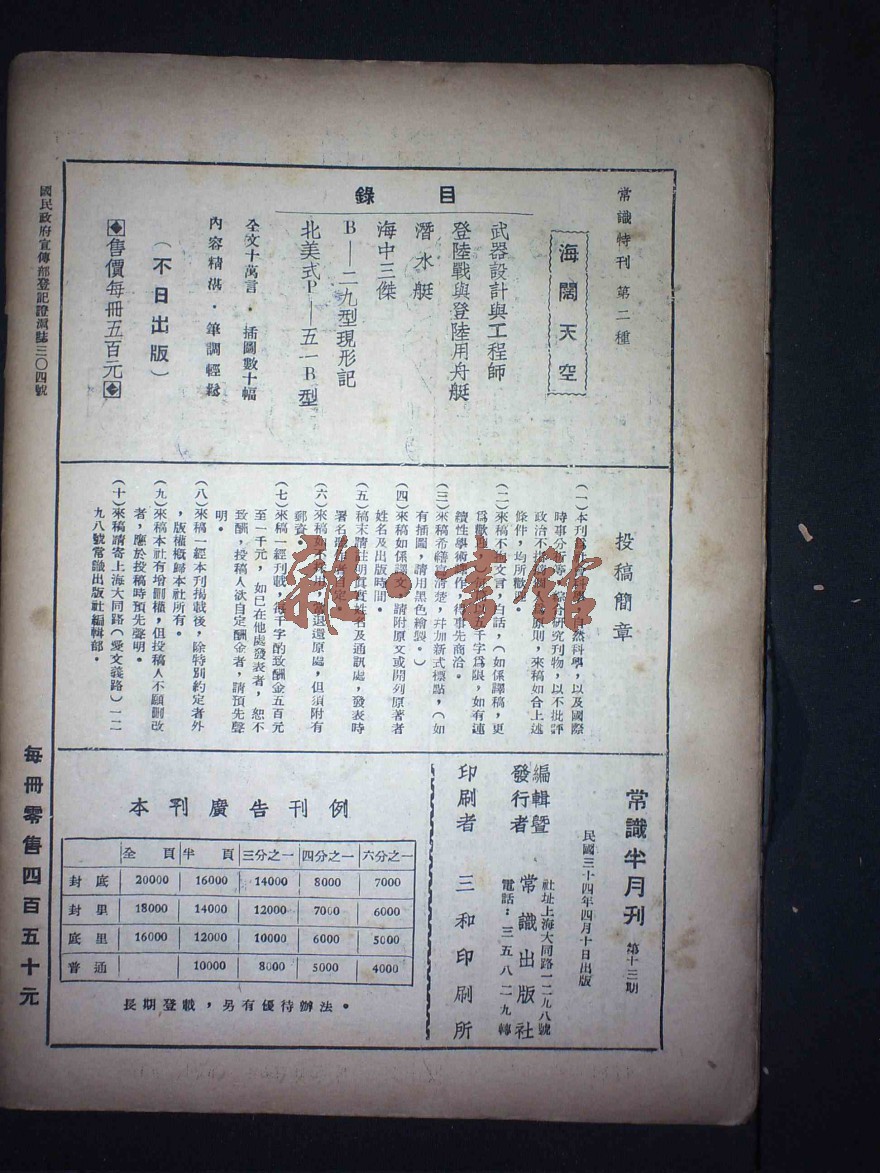 常識特刊 第二種
海闊天空
目錄
武器設計與工程師
登陸戰與登陸用舟艇
潛水艇
海中三傑
B—二九型現形記
北美式P—五一B型
全文十萬言・插圖數十幅
內容精湛・筆調輕鬆
（不日出版）
售價每冊五百元
投稿簡章
自然科學，以及國際
研究刊物，以不批評
原則，來稿如合上述
條件，均所歡迎。
文言，白話，（如係譯稿，更
五千字爲限，如有連
續性學術
事先商洽。
（三）來稿希繕寫清楚，幷加新式標點，（如
有插圖，請用黑色繪製。）
（四）來稿如係譯文，請附原文或開列原著者
姓名及出版時間。
（五）稿末請註明眞實姓名及通訊處，發表時
署名
（六）來稿
退還原處，但須附有
郵資。
（七）來稿一經刊載，每千字酌致酬金五百元
至一千元，如已在他處發表者，恕不
致酬，投稿人欲自定酬金者，請預先聲
明。
（八）來稿一經本刊揭載後，除特別約定者外
，版權槪歸本社所有。
（九）來稿本社有增删權，但投稿人不願删改
者，應於投稿時預先聲明。
（十）來稿請寄上海大同路（愛文義路）一二
九八號常識出版社編輯部。
常識半月刊 第十三期
民國三十四年四月十日出版
編輯暨
發行者
常識出版社
社址上海大同路一二九八號
電話：三五八二九轉
印刷者 三和印刷所
本刊廣告刊例
全頁 半頁 三分之一 四分之一 六分之一
封底 20000 16000 14000 8000 7000
封里 18000 14000 12000 7000 6000
底里 16000 12000 10000 6000 5000
普通 10000 8000 5000 4000
長期登載，另有優待辦法。
國民政府宣傳部登記證滬誌三〇四號
每冊零售四百五十元
雜・書館